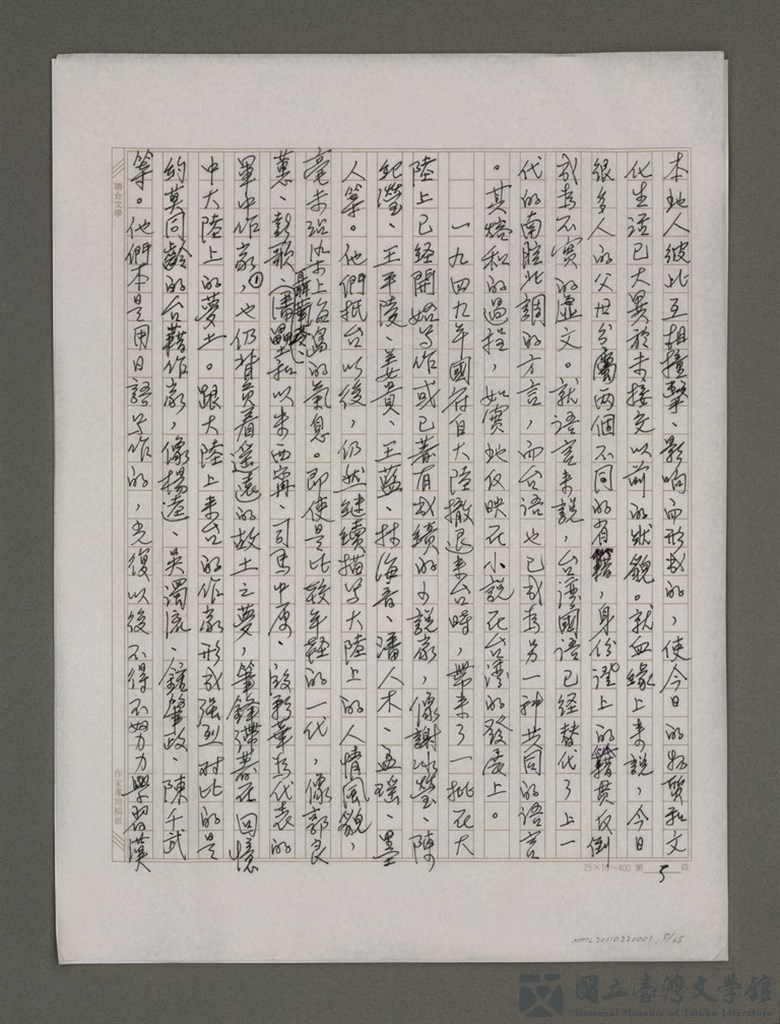 本地人彼此互相撞擊、影响而形成的，使今日的物質和文
化生活已大異於未接交以前的狀貌。就血緣上來說，今日
很多人的父母分屬兩個不同的省籍，身份證上的籍貫反倒
成為不實的虛文。就語言來說，台灣國語已經替代了上一
代的南腔北調的方言，而台語也已成為另一種共同的語言
。其熔和的過程，如實地反映在小說在台灣的發展上。
一九四九年國府自大陸撤退來台時，帶來了一批在大
陸上已經開始寫作或已著有成績的小說家，像謝冰瑩、陳
紀瀅、王平陵、姜貴、王藍、林海音、潘人木、孟瑤、墨
人等。他們抵台以後，仍然繼續描寫大陸上的人情風貌，
毫未沾染上海島的氣息。即使是比較年輕的一代，像郭良
蕙、彭歌、聶華苓、潘壘和以朱西甯、司馬中原、段彩華為代表的
軍中作家①，也仍背負着遙遠的故土之夢，筆鋒帶著在回憶
中大陸上的夢土。跟大陸上來台的作家形成強烈對比的是
約莫同齡的台籍作家，像楊逵、吳濁流、鍾肇政、陳千武
等。他們本是用日語寫作的，光復以後不得不努力學習漢
聯合文學
25×16=400 第 5 頁
NMTL20110220001, 5/65
國立臺灣文學館
National Museum of Taiwan Literature